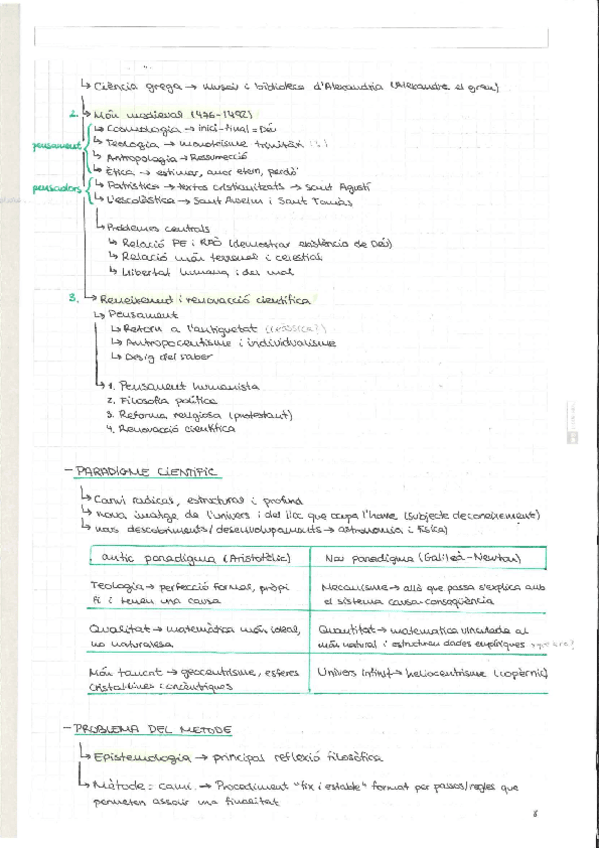 ↳ Ciència grega → museu i biblioteca d'Alexandria (Alexandre el gran)
2. ↳ Món medieval (476-1492)
↳ Cosmologia → inici-final = Déu
pensament ↳ Teologia → monoteisme trinitari
↳ Antropologia → Ressurrecció
↳ Ètica → estimar, amor etern, perdó
pensadors ↳ Patrística → textos cristianitzats → Sant Agustí
↳ L'escolàstica → Sant Anselm i Sant Tomàs
↳ Problemes centrals
↳ Relació FE i RAÓ (demostrar existència de Déu)
↳ Relació món terrenal i celestial
↳ Llibertat humana i del mal
3. ↳ Renaixement i renovacció científica
↳ Pensament
↳ Retorn a l'antiguetat (clàssica?)
↳ Antropocentisme i individualisme
↳ Desig del saber
↳ 1. Pensament humanista
2. Filosofia política
3. Reforma religiosa (protestant)
4. Renovacció científica
- PARADIGME CIENTÍFIC
↳ Canvi radical, estructural i profund
↳ nova imatge de l'univers i del lloc que ocupa l'home (subjecte de coneixement)
↳ nous descobriments/desenvolupaments → astronomia i física
antic paradigma (Aristotèlic) Nou paradigma (Galileà-Newton)
Teologia → perfecció formal, pròpi Mecanisme → allò que passa s'explica amb
fi i tenen una causa el sistema causa-conseqüència
Qualitat → matemàtica món ideal, Quantitat → matematica vinculada al
no naturalesa món natural i estructuren dades empíriques
Món tancat → geocentrisme, esferes Univers infinit → heliocentrisme (copèrnic)
cristal·lines i concèntriques
- PROBLEMA DEL METODE
↳ Epistemologia → principal reflexió filosòfica
↳ Mètode: camí. → Procediment "fix i estable" format per passos/regles que
permeten assolir una finalitat
8